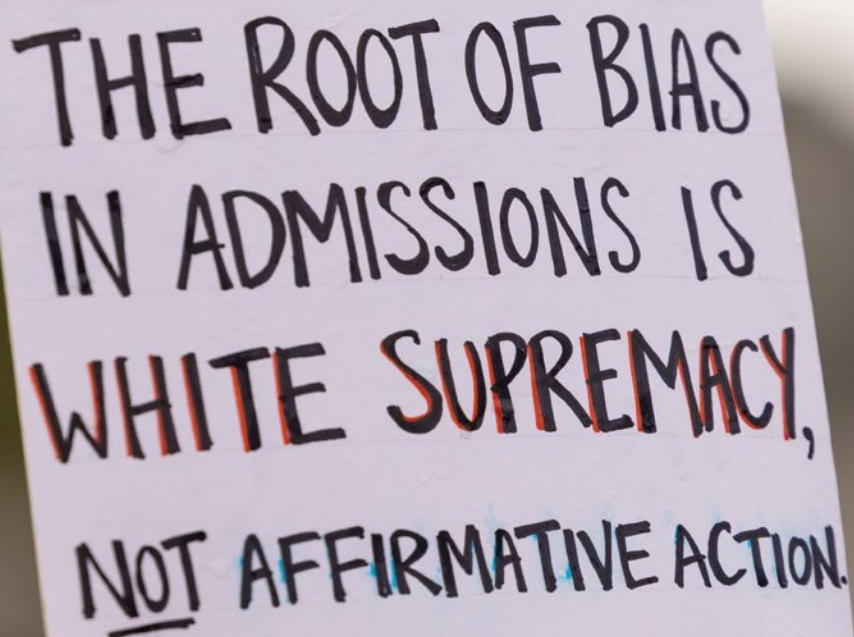 THE ROOT OF BIAS
IN ADMISSIONS IS
WHITE SUPREMACY,
NOT AFFIRMATIVE ACTION.